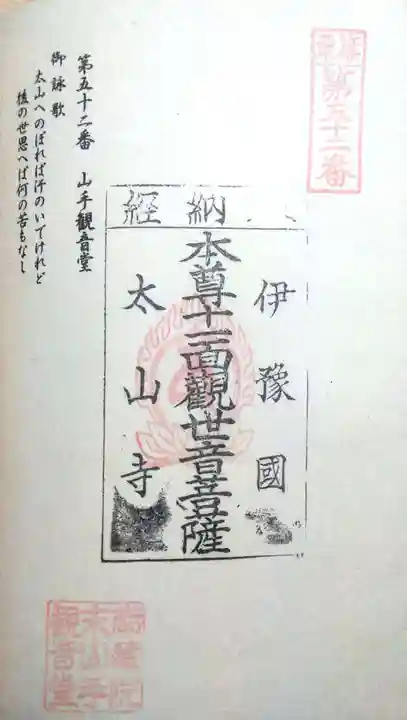 第五十二番
納経
伊豫國
本尊十一面觀世音菩薩
太山寺
第五十二番 山手観音堂
御詠歌
太山へのぼれば汗のいでけれど
後の世思へば何の苦もなし
観音堂